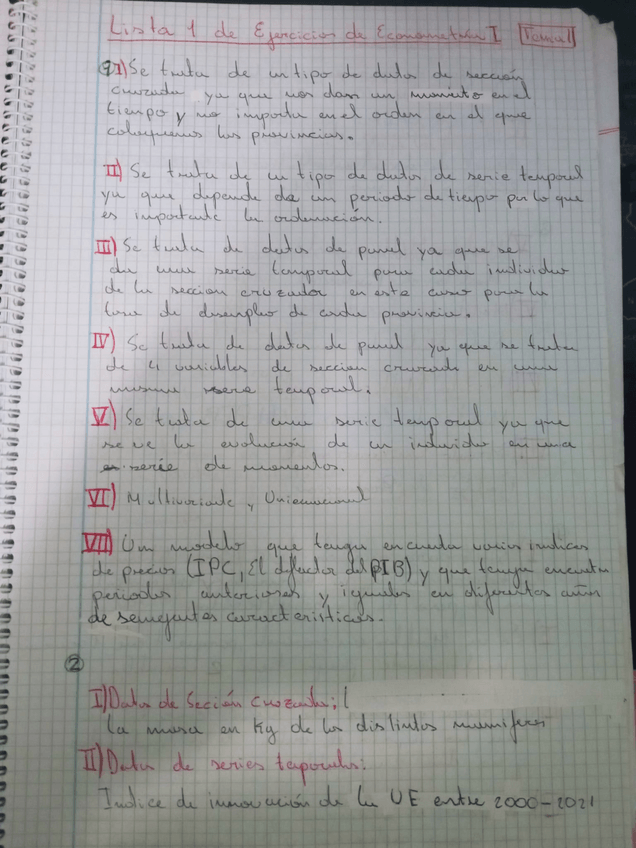 Lista 1 de Ejercicios de Econometría I
① I) Se trata de un tipo de datos de sección
cruzada ya que nos dan un momento en el
tiempo y no importa en el orden en el que
coloquemos las provincias.
II) Se trata de un tipo de datos de serie temporal
ya que depende de un periodo de tiempo por lo que
es importante la ordenación.
III) Se trata de datos de panel ya que se
da una serie temporal para cada individuo
de la seccion cruzada en este caso para la
tasa de desempleo de cada provincia.
IV) Se trata de datos de panel ya que se trata
de 4 variables de seccion cruzada en una
misma serie temporal.
V) Se trata de una serie temporal ya que
se ve la evolución de un individuo en una
serie de momentos.
VI) Multivariante, Uniecuacional
VII) Un modelo que tenga en cuenta varios indices
de precios (IPC, El deflactor del PIB) y que tenga en cuenta
periodos anteriores y iguales en diferentes años
de semejantes caracteristicas.
②
I) Datos de Sección cruzada:
La masa en Kg de los distintos mamiferos
II) Datos de series temporales:
Indice de innovación de la UE entre 2000-2021